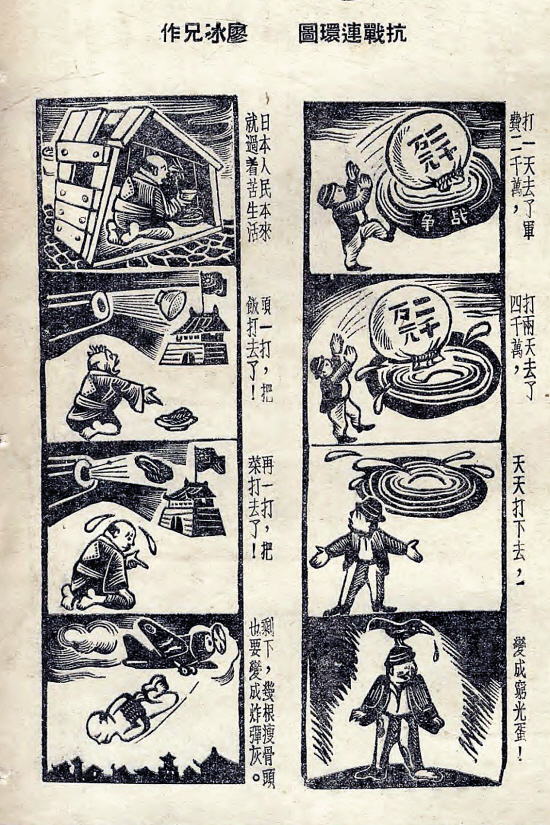 抗戰連環圖
廖冰兄作
打一天去了軍
費二千萬，
二千
万元
战争
打兩天去了
四千萬，
二千
万元
天天打下去，
變成窮光蛋！
日本人民本來
就過着苦生活
頭一打，把
飯打去了！
再一打，把
菜打去了！
剩下，幾根瘦骨頭
也要變成炸彈灰。